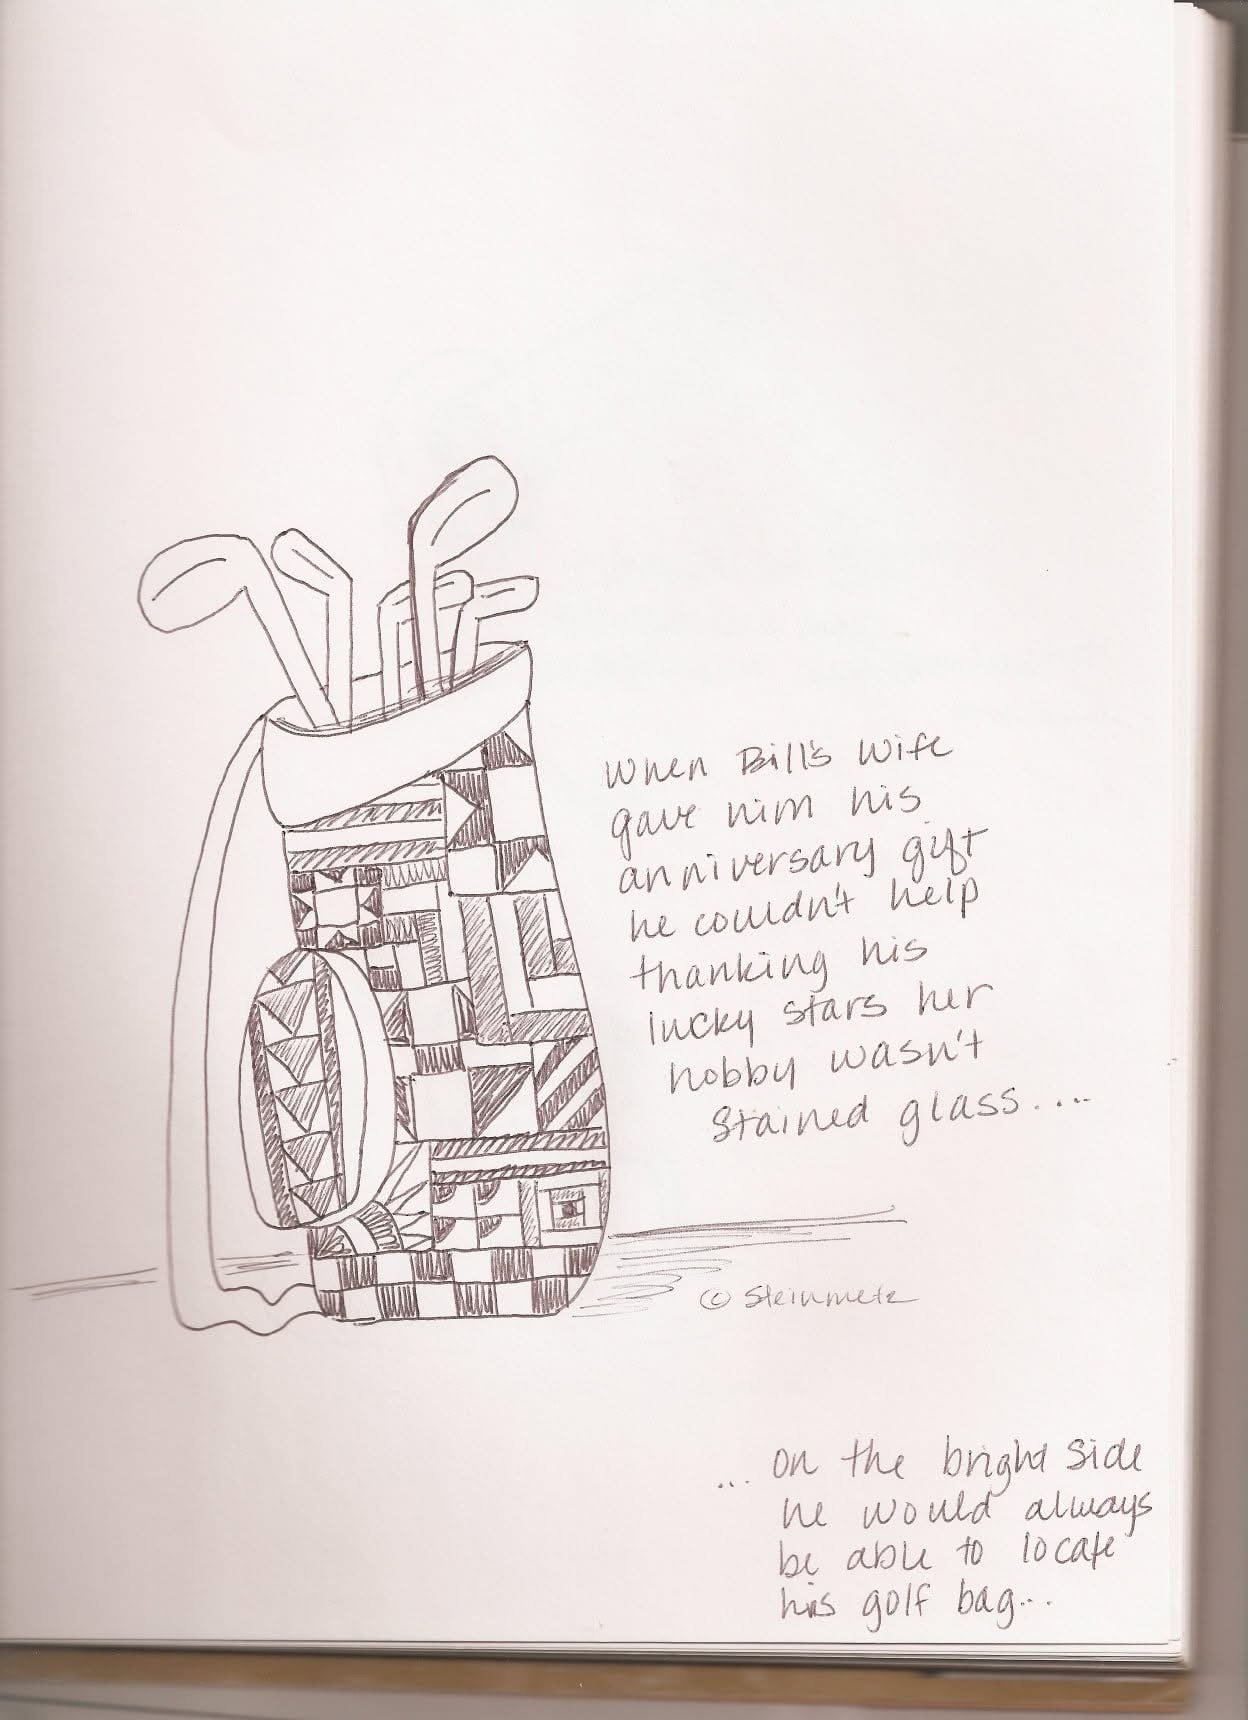 When Bill's wife
gave him his
anniversary gift
he couldn't help
thanking his
lucky stars her
hobby wasn't
stained glass....
© Steinmetz
... on the bright side
he would always
be able to locate
his golf bag...